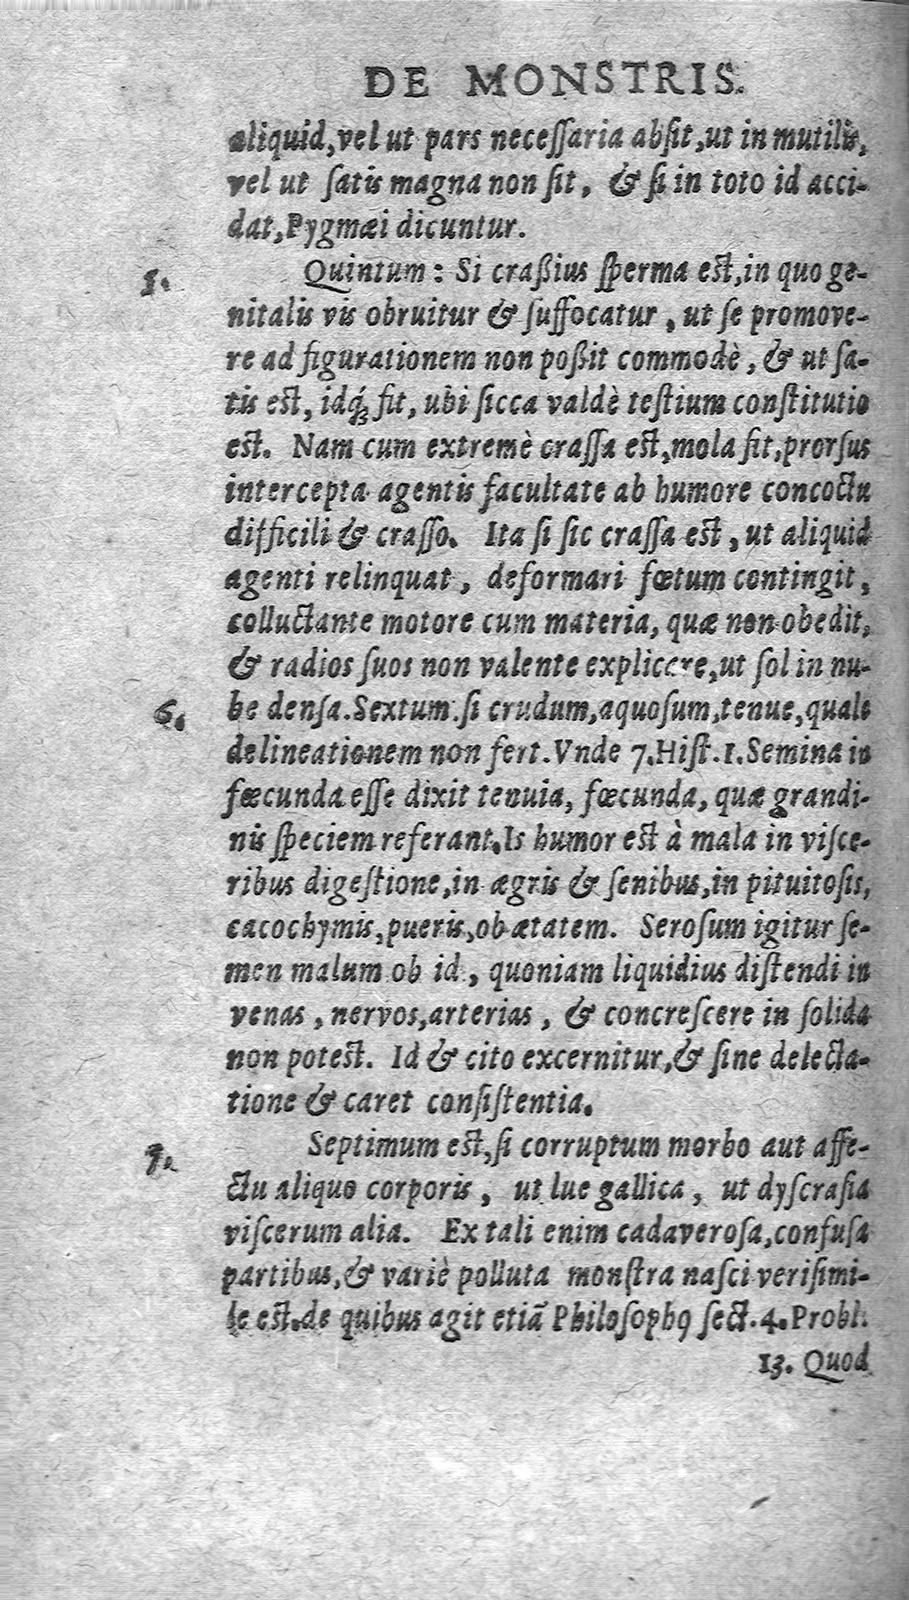 DE MONSTRIS.
aliquid, vel ut pars neceſſaria abſit, ut in mutilis,
vel ut ſatis magna non ſit, & ſi in toto id acci-
dat, Pygmæi dicuntur.
5. Quintum: Si craßius ſperma eſt, in quo ge-
nitalis vis obruitur & ſuffocatur, ut ſe promove-
re ad figurationem non poßit commodè, & ut ſa-
tis eſt, idq́; fit, ubi ſicca valdè teſtium conſtitutio
eſt. Nam cum extremè craſſa eſt, mola fit, prorſus
intercepta agentis facultate ab humore concoctu
difficili & craſſo. Ita ſi ſic craſſa eſt, ut aliquid
agenti relinquat, deformari fœtum contingit,
colluctante motore cum materia, quæ non obedit,
& radios ſuos non valente explicare, ut ſol in nu-
6. be denſa. Sextum ſi crudum, aquoſum, tenue, quale
delineationem non fert. Vnde 7. Hiſt. 1. Semina in
fœcunda eſſe dixit tenuia, fœcunda, quæ grandi-
nis ſpeciem referant. Is humor eſt à mala in viſce-
ribus digeſtione, in ægris & ſenibus, in pituitoſis,
cacochymis, pueris, ob ætatem. Seroſum igitur ſe-
men malum ob id, quoniam liquidius diſtendi in
venas, nervos, arterias, & concreſcere in ſolida
non poteſt. Id & cito excernitur, & ſine delecta-
tione & caret conſiſtentia.
7. Septimum eſt, ſi corruptum morbo aut affe-
ctu aliquo corporis, ut lue gallica, ut dyſcraſia
viſcerum alia. Ex tali enim cadaveroſa, confuſa
partibus, & variè polluta monſtra naſci veriſimi-
le eſt. de quibus agit etiā Philoſophꝰ ſect. 4. Probl.
13. Quod